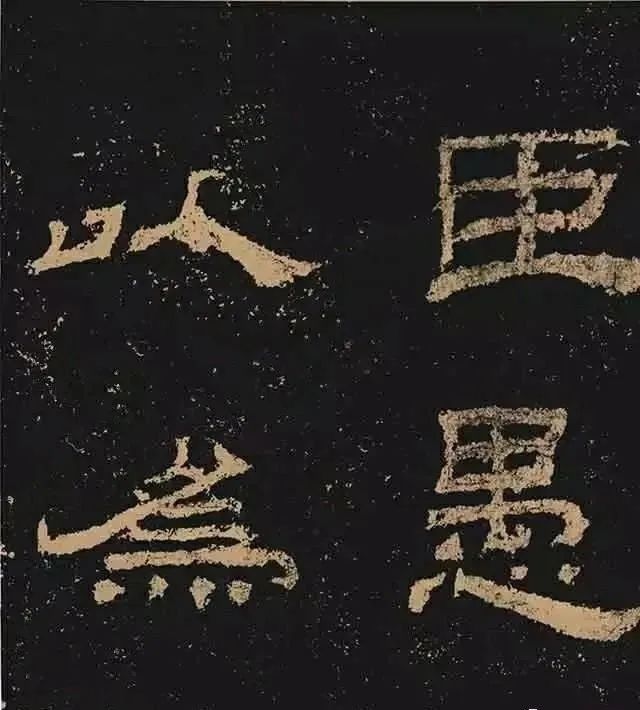 臣愚
以為